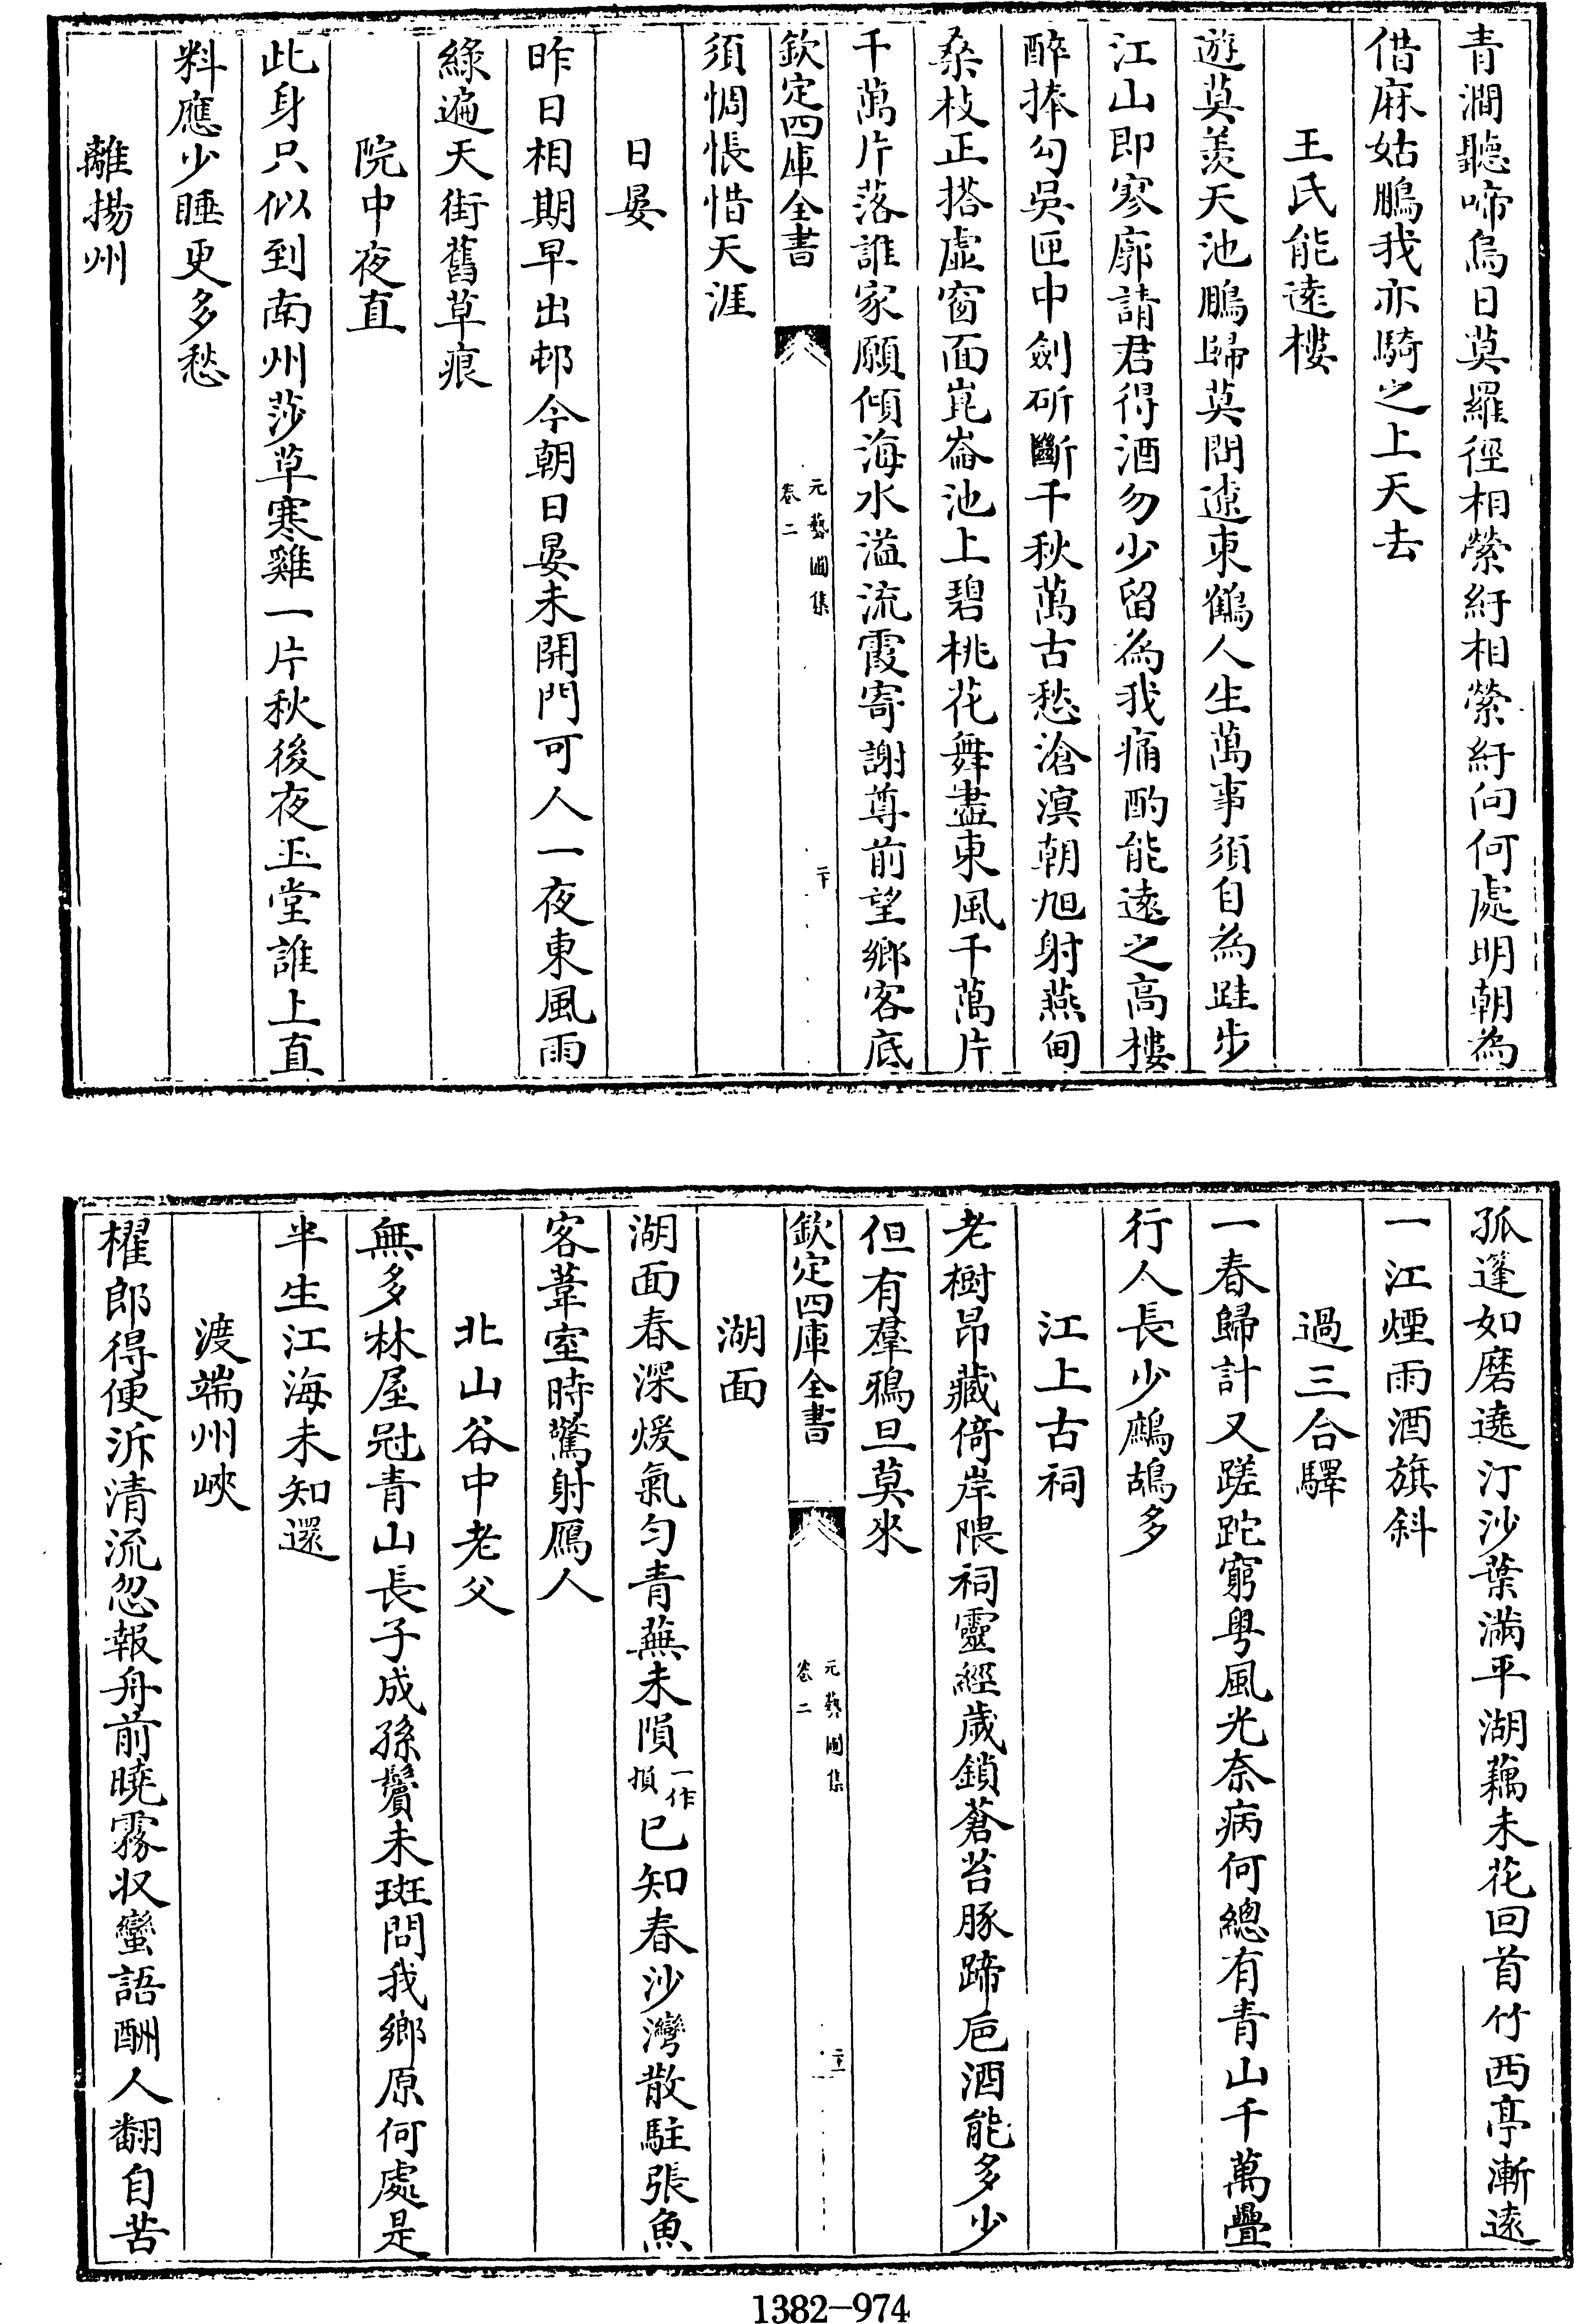 青澗聽啼烏日莫羅徑相縈紆相縈紆向何處明朝為
借麻姑鵬我亦騎之上天去
王氏能遠樓
遊莫羨天池鵬歸莫問遼東鶴人生萬事須自為跬步
江山即寥廓請君得酒勿少留為我痛酌能遠之高樓
醉捧勾吳匣中劍斫斷千秋萬古愁滄溟朝旭射燕甸
桑枝正搭虛窗面崑崙池上碧桃花舞盡東風千萬片
千萬片落誰家願傾海水溢流霞寄謝尊前望鄉客底
欽定四庫全書
元藝圃集
卷二
二十
須惆悵惜天涯
日晏
昨日相期早出邨今朝日晏未開門可人一夜東風雨
綠遍天街舊草痕
院中夜直
此身只似到南州莎草寒雞一片秋後夜玉堂誰上直
料應少睡更多愁
離揚州
孤篷如磨遶汀沙葉滿平湖藕未花回首竹西亭漸遠
一江煙雨酒旗斜
過三合驛
一春歸計又蹉跎窮粤風光奈病何總有青山千萬疊
行人長少鷓鴣多
江上古祠
老樹昂藏倚岸隈祠靈經歲鎖蒼苔豚蹄巵酒能多少
但有羣鴉旦莫來
欽定四庫全書
元藝圃集
卷二
二十一
湖面
湖面春深煖氣匀青蕪未隕一作損已知春沙灣散駐張魚
客葦室時驚射鴈人
北山谷中老父
無多林屋冠青山長子成孫鬢未斑問我鄉原何處是
半生江海未知還
渡端州峽
櫂郎得便泝清流忽報舟前曉霧収蠻語酬人翻自苦
1382-974